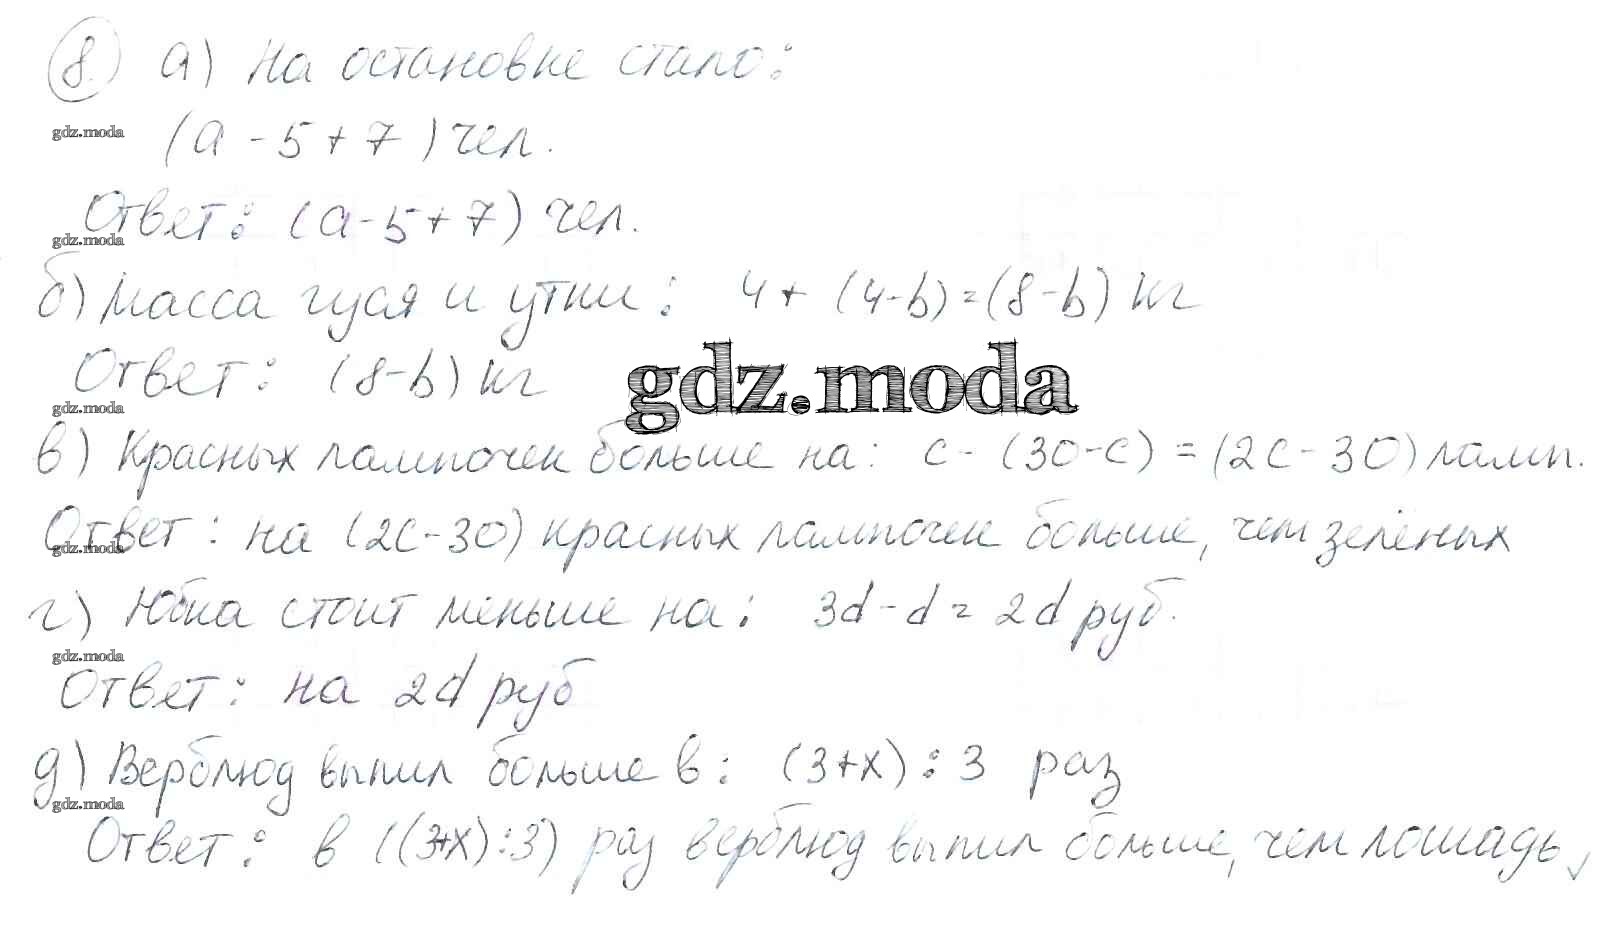 8. а) На остановке стало:
gdz.moda
(а - 5 + 7) чел.
Ответ: (а - 5 + 7) чел.
gdz.moda
б) Масса гуся и утки: 4 + (4-b) = (8-b) кг
Ответ: (8-b) кг
gdz.moda
gdz.moda
в) Красных лампочек больше на: с - (30-с) = (2с - 30) ламп.
Ответ: на (2с-30) красных лампочек больше, чем зелёных
gdz.moda
г) Юбка стоит меньше на: 3d - d = 2d руб.
gdz.moda
Ответ: на 2d руб
д) Верблюд выпил больше в: (3+х) : 3 раз
gdz.moda
Ответ: в ((3+х):3) раз верблюд выпил больше, чем лошадь,